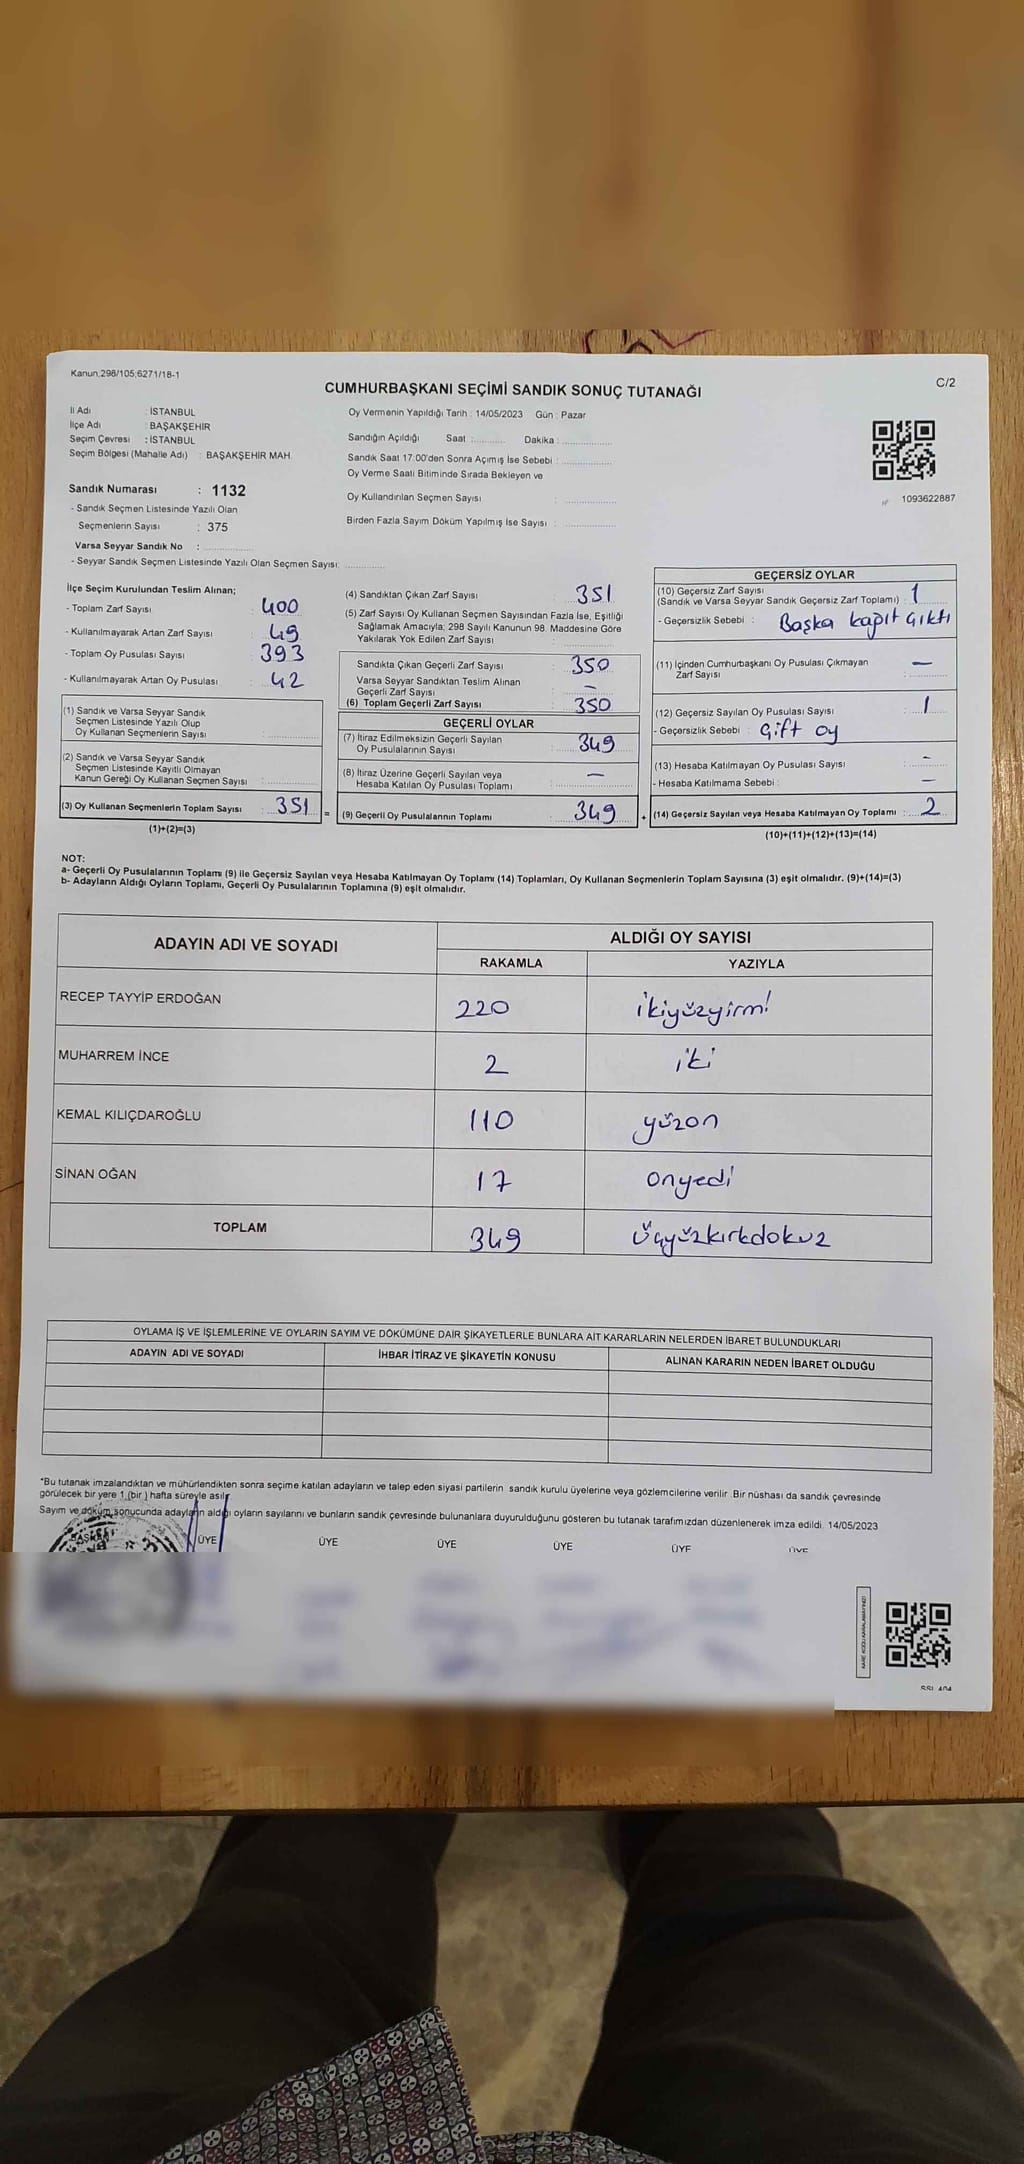 Kanun.298/105;6271/18-1
C/2
CUMHURBAŞKANI SEÇİMİ SANDIK SONUÇ TUTANAĞI
İl Adı : İSTANBUL
İlçe Adı : BAŞAKŞEHİR
Seçim Çevresi : İSTANBUL
Seçim Bölgesi (Mahalle Adı) : BAŞAKŞEHİR MAH.
Sandık Numarası : 1132
- Sandık Seçmen Listesinde Yazılı Olan
Seçmenlerin Sayısı : 375
Varsa Seyyar Sandık No :
- Seyyar Sandık Seçmen Listesinde Yazılı Olan Seçmen Sayısı:
Oy Vermenin Yapıldığı Tarih : 14/05/2023 Gün : Pazar
Sandığın Açıldığı Saat : Dakika :
Sandık Saat 17:00'den Sonra Açımış İse Sebebi :
Oy Verme Saati Bitiminde Sırada Bekleyen ve
Oy Kullandırılan Seçmen Sayısı :
Birden Fazla Sayım Döküm Yapılmış İse Sayısı :
1093622887
İlçe Seçim Kurulundan Teslim Alınan;
- Toplam Zarf Sayısı : 400
- Kullanılmayarak Artan Zarf Sayısı : 49
- Toplam Oy Pusulası Sayısı : 393
- Kullanılmayarak Artan Oy Pusulası : 42
(1) Sandık ve Varsa Seyyar Sandık
Seçmen Listesinde Yazılı Olup
Oy Kullanan Seçmenlerin Sayısı :
(2) Sandık ve Varsa Seyyar Sandık
Seçmen Listesinde Kayıtlı Olmayan
Kanun Gereği Oy Kullanan Seçmen Sayısı :
(3) Oy Kullanan Seçmenlerin Toplam Sayısı : 351 =
(1)+(2)=(3)
(4) Sandıktan Çıkan Zarf Sayısı : 351
(5) Zarf Sayısı Oy Kullanan Seçmen Sayısından Fazla İse, Eşitliği
Sağlamak Amacıyla; 298 Sayılı Kanunun 98. Maddesine Göre
Yakılarak Yok Edilen Zarf Sayısı :
Sandıkta Çıkan Geçerli Zarf Sayısı : 350
Varsa Seyyar Sandıktan Teslim Alınan
Geçerli Zarf Sayısı : –
(6) Toplam Geçerli Zarf Sayısı : 350
GEÇERLİ OYLAR
(7) İtiraz Edilmeksizin Geçerli Sayılan
Oy Pusulalarının Sayısı : 349
(8) İtiraz Üzerine Geçerli Sayılan veya
Hesaba Katılan Oy Pusulası Toplamı : –
(9) Geçerli Oy Pusulalarının Toplamı : 349 +
GEÇERSİZ OYLAR
(10) Geçersiz Zarf Sayısı
(Sandık ve Varsa Seyyar Sandık Geçersiz Zarf Toplamı) : 1
- Geçersizlik Sebebi : Başka kapıt çıktı
(11) İçinden Cumhurbaşkanı Oy Pusulası Çıkmayan
Zarf Sayısı : –
(12) Geçersiz Sayılan Oy Pusulası Sayısı : 1
- Geçersizlik Sebebi : Çift oy
(13) Hesaba Katılmayan Oy Pusulası Sayısı : -
- Hesaba Katılmama Sebebi : –
(14) Geçersiz Sayılan veya Hesaba Katılmayan Oy Toplamı : 2
(10)+(11)+(12)+(13)=(14)
NOT:
a- Geçerli Oy Pusulalarının Toplamı (9) ile Geçersiz Sayılan veya Hesaba Katılmayan Oy Toplamı (14) Toplamları, Oy Kullanan Seçmenlerin Toplam Sayısına (3) eşit olmalıdır. (9)+(14)=(3)
b- Adayların Aldığı Oyların Toplamı, Geçerli Oy Pusulalarının Toplamına (9) eşit olmalıdır.
ADAYIN ADI VE SOYADI ALDIĞI OY SAYISI
RAKAMLA YAZIYLA
RECEP TAYYİP ERDOĞAN 220 ikiyüzyirmi
MUHARREM İNCE 2 iki
KEMAL KILIÇDAROĞLU 110 yüzon
SİNAN OĞAN 17 onyedi
TOPLAM 349 üçyüzkırkdokuz
OYLAMA İŞ VE İŞLEMLERİNE VE OYLARIN SAYIM VE DÖKÜMÜNE DAİR ŞİKAYETLERLE BUNLARA AİT KARARLARIN NELERDEN İBARET BULUNDUKLARI
ADAYIN ADI VE SOYADI İHBAR İTİRAZ VE ŞİKAYETİN KONUSU ALINAN KARARIN NEDEN İBARET OLDUĞU
*Bu tutanak imzalandıktan ve mühürlendikten sonra seçime katılan adayların ve talep eden siyasi partilerin sandık kurulu üyelerine veya gözlemcilerine verilir. Bir nüshası da sandık çevresinde
görülecek bir yere 1 (bir ) hafta süreyle asılır.
Sayım ve döküm sonucunda adayların aldığı oyların sayılarını ve bunların sandık çevresinde bulunanlara duyurulduğunu gösteren bu tutanak tarafımızdan düzenlenerek imza edildi. 14/05/2023
BAŞKAN ÜYE ÜYE ÜYE ÜYE ÜYE ÜYE